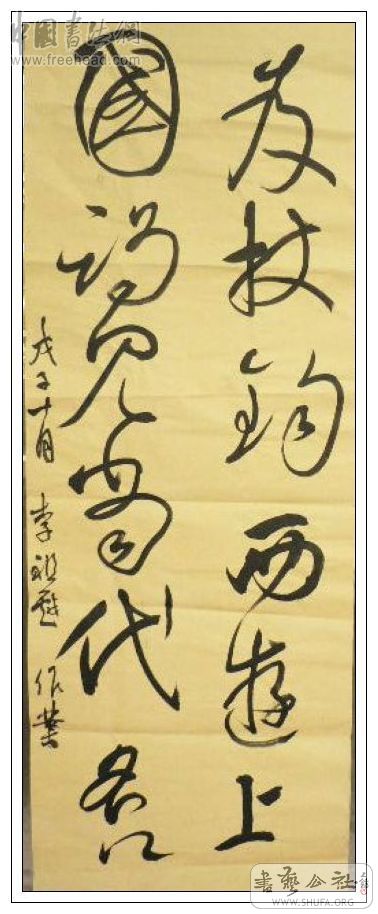 中國书法網
www.freehead.com
笈杖錫西遊上
國謁見當代名
戊子十月 李 作業
書藝公社
WWW.SHUFA.ORG